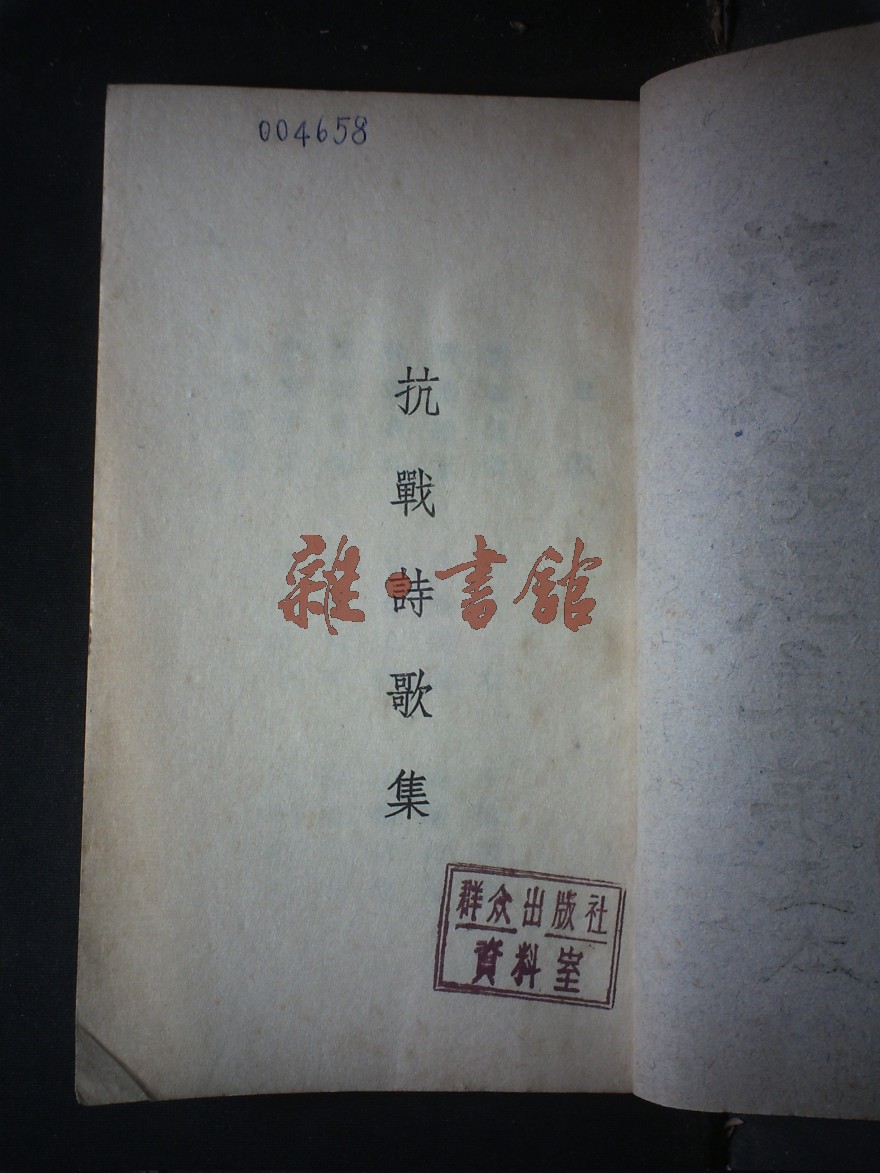 004658
抗戰詩歌集
雜書館
群众出版社
資料室